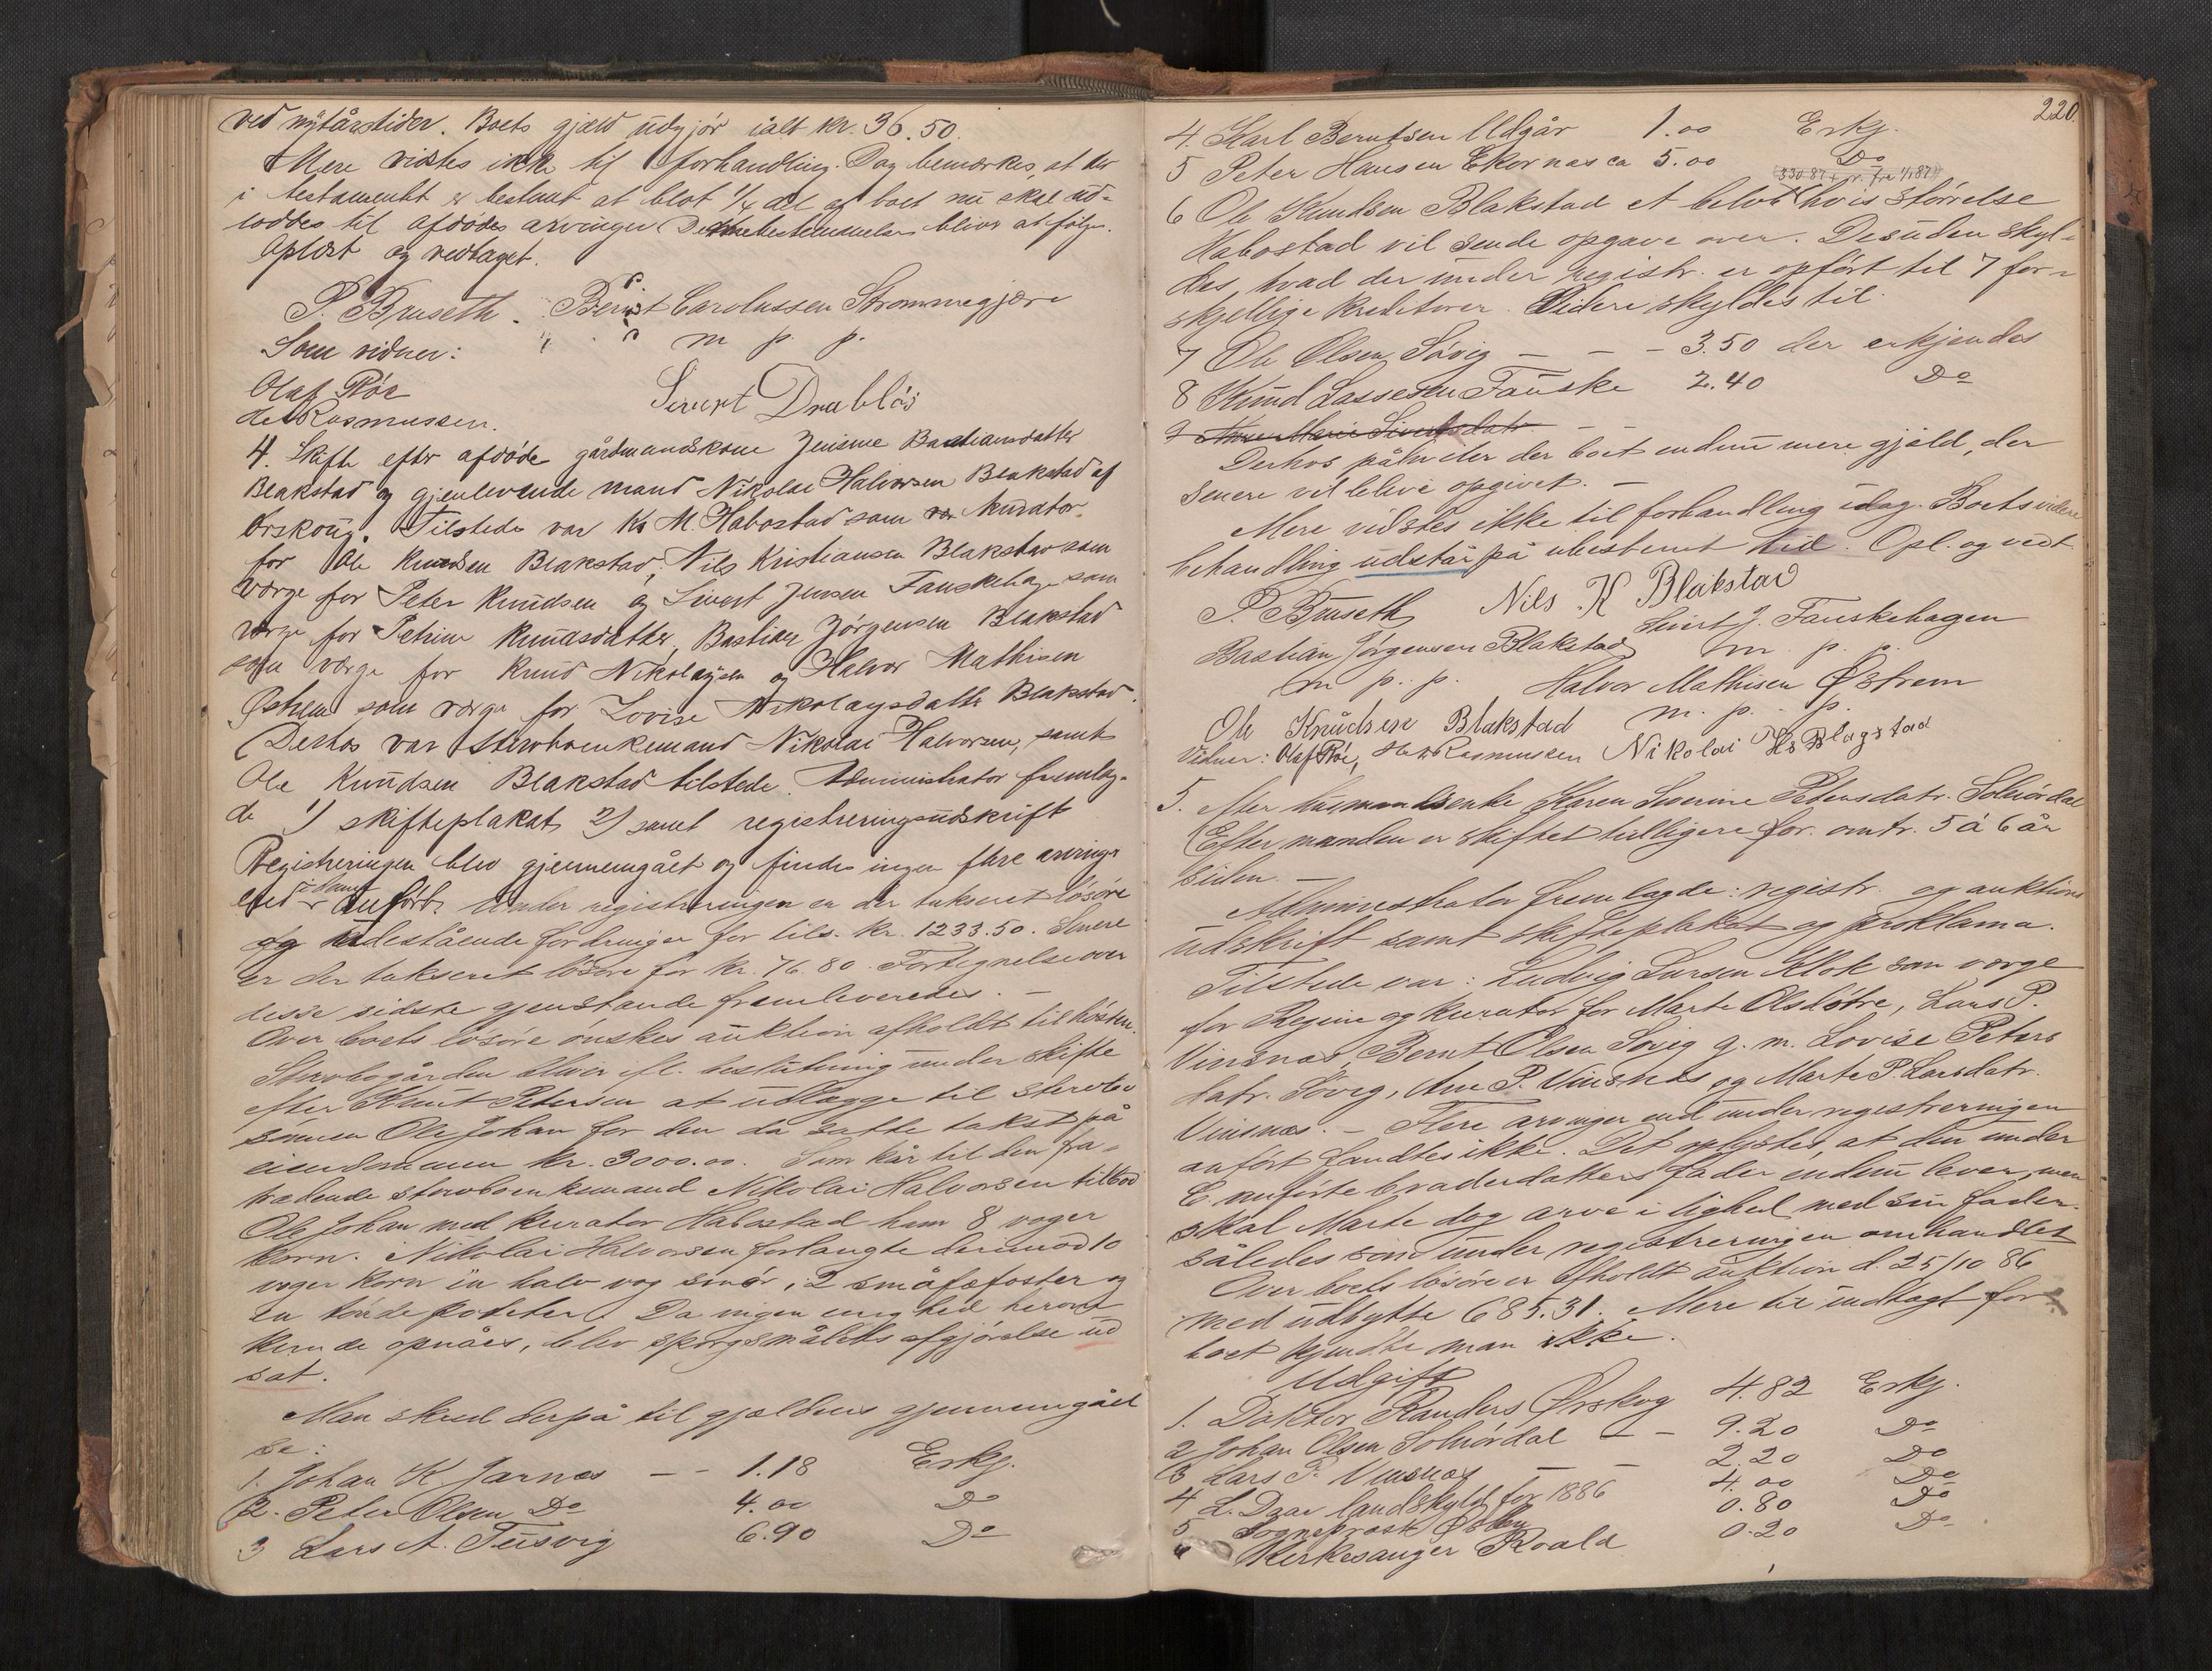 ved nytårstider. Boets gjæld udgjör ialt kr. 36.50.
Mere vidstes ikke til forhandling. Dog bemærkes, at der
i testamentet er bestemt at blot 1/4 del af boet nu skal ud-
loddes til afdödes arvinger. Denne bestemmelse bliver at følge.
Oplæst og vedtaget.
P. Bruseth. Bernt Carolussen Strømmegjære
m p. p.
Som vidner:
Olaf Röe
Rasmussen.
Sivert Drabløs
4. Skifte efter afdöde gårdmandskone Jensine Bastiansdatter
Blakstad og gjenlevende mand Nikolai Halvorsen Blakstad af
Ørskoug. Tilstede var K. M. Habostad som kurator
for Ole Knudsen Blakstad, Nils Kristiansen Blakstad som
værge for Peter Knudsen og Sivert Jensen Fauskehagen som
værge for Petrine Knudsdatter, Bastian Jörgensen Blakstad
som værge for Knud Nikolaysen og Halvor Mathisen
Østrem som værge for Lovise Nikolaysdatter Blakstad.
Derhos var sterboenkemand Nikolai Halvorsen, samt
Ole Knudsen Blakstad tilstede. Administrator fremlag-
de 1) skifteplakat 2) samt registreringsudskrift
Registreringen blev gjennemgået og findes ingen flere arvinger
end i denne anfört. Under registreringen er der takseret lösöre
og udestående fordringer for tils. kr. 1233.50. Senere
er der takseret lösöre for kr. 76.80. Fortegnelse over
disse sidste gjenstande fremleveredes. —
Over boets lösöre önskes auktion afholdt til hösten.
Sterbogården bliver fl. beslutning under skifte
efter Knut Petersen at udlægge til sterbo
sönnen Ole Johan for den da satte takst på
eiendommen kr. 3000.00. Som kår til den fra-
trædende sterboenkemand Nikolai Halvorsen tilböd
Ole Johan med kurator Habostad ham 8 voger
korn. Nikolai Halvorsen forlangte derimod 10
voger korn en halv vog smör, 2 småfæfoster og
en tönde poteter. Da ingen enighed herom
kunde opnåes, blev spörgsmålets afgjörelse ud
sat.
Man skred derpå til gjældens gjennemgåel
se:
1. Johan K Jarnæs — - 1.18 Erkj.
2. Peter Olsen Do 4.00 Do
3 Lars A. Tusvig 6.90 Do
220.
4. Karl Berntsen Uldgår 1.00 Erkj.
5 Peter Hansen Ekornæs ca 5.00 Do
6 Ole Knudsen Blakstad et belöb hvis störrelse
Habostad vil sende opgave over. Desuden skyl-
des, hvad der under registr. er opfört til 7 for-
skjellige kreditorer. Videre skyldes til.
7 Ole Olsen Søvig — - - 3.50 der erkjendes
8 Knud Lassesen Fauske 2.40 Do
9 Anne Marie Sivertsdatr.
Derhos påhviler der boet endnu mere gjæld, der
senere vil blive opgivet. —
Mere vidstes ikke til forhandling idag. Boets videre
behandling udstår på ubestemt tid. Opl. og vedt.
P. Bruseth Nils K Blakstad
Sivert J. Fauskehagen
Bastian Jörgensen Blakstad m. p. p.
m p. p. Halvor Mathisen Østrem
Ole Knudsen Blakstad m. p. p.
Vidner: Olaf Röe, Rasmussen Nikolai Hs Blagstad
5. After husmandsenke Karen Severine Petersdatr. Solnördal
Efter manden er skiftet tidligere for omtr. 5 á 6 år
siden. —
Administrator fremlagde: registr. og auktions
udskrift samt skifteplakat og proklama.
Tilstede var: Ludvig Larsen Klok som værge
for Regine og kurator for Marte Olsdötre, Lars P.
Vinsnæs, Bernt Olsen Søvig g. m. Lovise Peters
datr. Søvig, Ane P. Vinsnæs og Marte P. Larsdatr.
Vinsnæs. — Flere arvinger end under registreringen
anfört fandtes ikke. Det oplystes, at den under
E anförte broderdatters fader endnu lever, men
skal Marte dog arve i lighed med sin fader.
således som under registreringen omhandlet
Over boets lösöre er afholdt auktion d. 25/10 86
med udbytte 685.31. Mere til indtægt for
boet kjendte man ikke.
Udgift
1. Doktor Randers Ørskog 4.82 Erkj.
2 Johan Olsen Solnördal — - 9.20 Do
3 Lars P. Vinsnæs — - 2.20 Do
4 L. Daae landskyld for 1886 4.00 Do
5 Sogneprest 0.80 Do
6 Kirkesanger Roald 0.20 Do